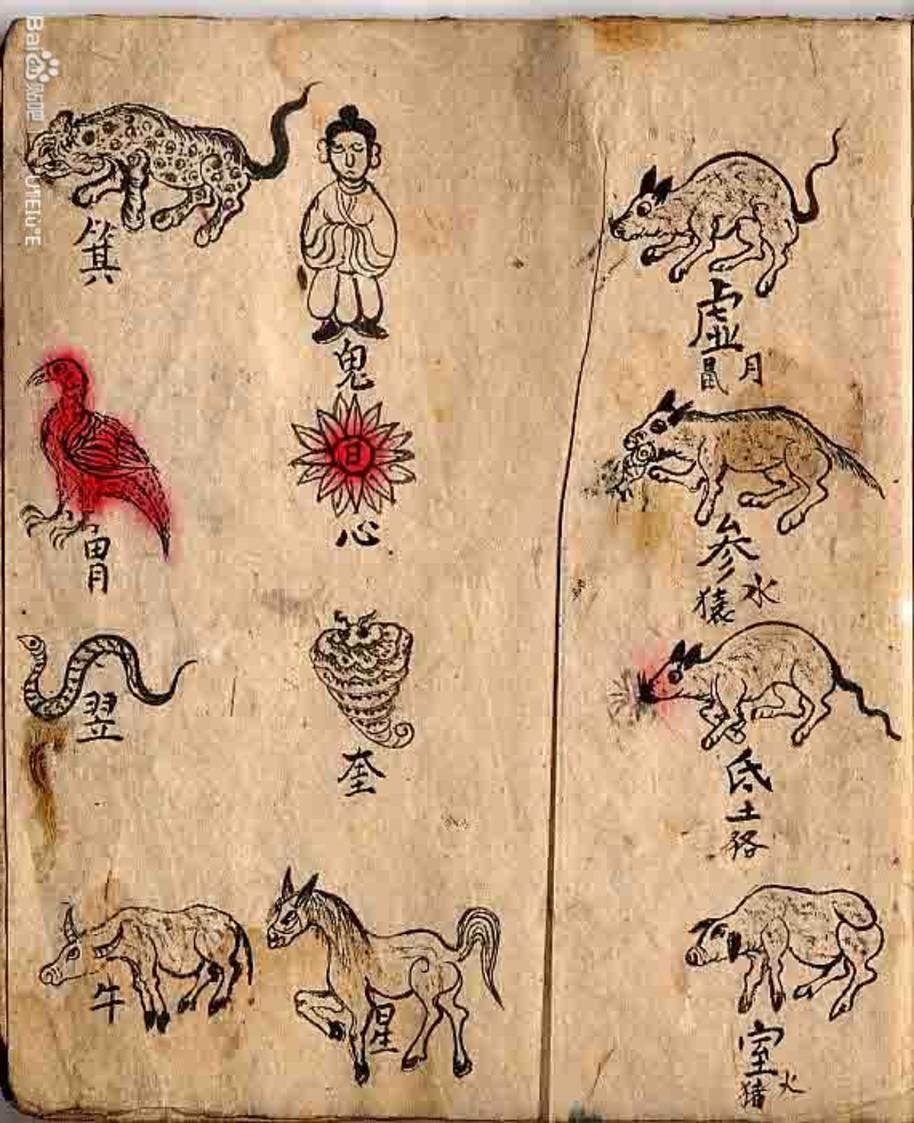 Bai贴吧
箕
鬼
胃
日
心
翌
奎
牛
星
虚
月
鼠
参
水
猿
氐
土
室
火
猪